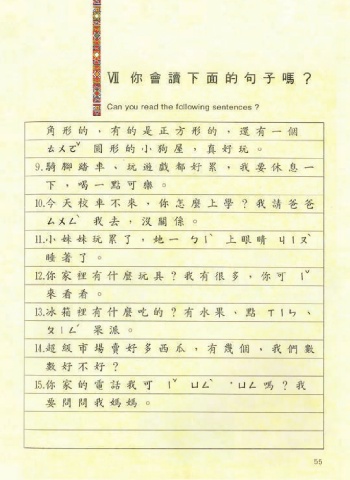 Ⅶ 你會讀下面的句子嗎？
Can you read the following sentences ?
角形的，有的是正方形的，還有一個
ㄊㄨㄛˇ 圓形的小狗屋，真好玩。
9.騎腳踏車、玩遊戲都好累，我要休息一
下、喝一點可樂。
10.今天校車不來，你怎麼上學？我請爸爸
ㄙㄨㄥˋ 我去，沒關係。
11.小妹妹玩累了，她一 ㄅㄧˋ 上眼睛 ㄐㄧㄡˋ
睡著了。
12.你家裡有什麼玩具？我有很多，你可 ㄧˇ
來看看。
13.冰箱裡有什麼吃的？有水果、點 ㄒㄧㄣ、
ㄆㄧㄥˊ 果派。
14.超級市場賣好多西瓜，有幾個，我們數
數好不好？
15.你家的電話我可 ㄧˇ ㄩㄥˋ ˙ㄩㄥ 嗎？我
要問問我媽媽。
55